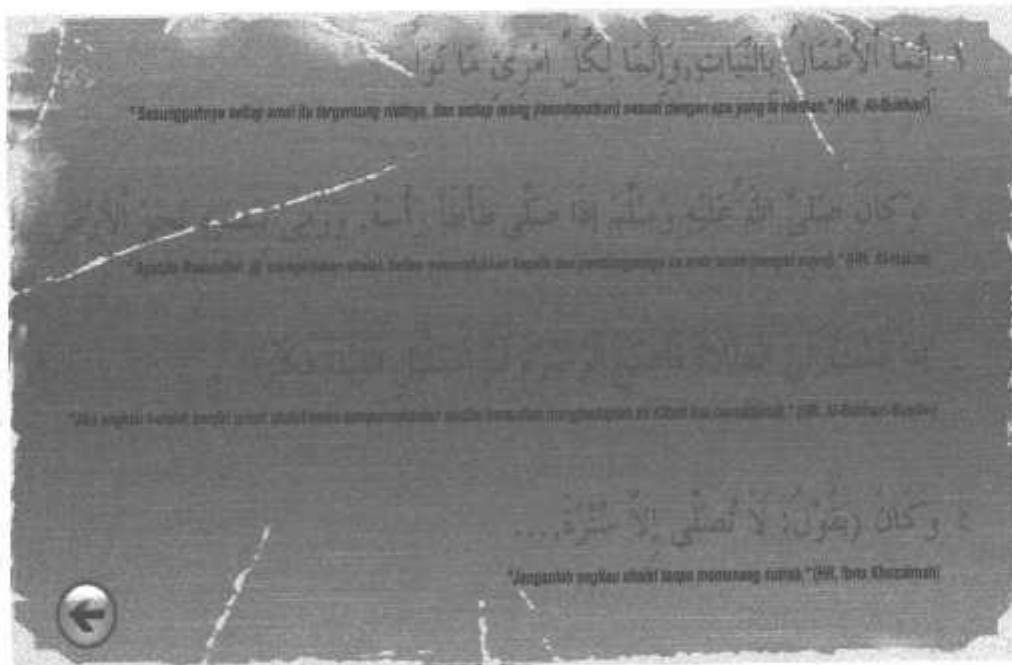 ١ إِنَّمَا اْلأَعْمَالُ بِالنِّيَاتِ,وَإِنَّمَا لِكُلِّ امْرِئٍ مَا نَوَا
"Sesungguhnya setiap amal itu tergantung niatnya, dan setiap orang (mendapatkan) sesuai dengan apa yang ia niatkan." (HR. Al-Bukhari)
كَانَ صَلَّى اللهُ عَلَيْهِ وَسَلَّمَ إِذَا صَلَّى طَأْطَأَ رَأْسَهُ, وَرَمَى نَحْوَ اْلأَرْضِ
"Apabila Rasulullah mengerjakan shalat, beliau menundukkan kepala dan pandangannya ke arah tanah (tempat sujud)." (HR. Al-Hakim)
إِذَا قُمْتَ إِلَى الصَّلاَةِ فَأَسْبِغِ الْوُضُوْءَ ثُمَّ اسْتَقْبِلِ الْقِبْلَةَ فَكَبِّرْ
"Jika engkau hendak berdiri untuk shalat maka sempurnakanlah wudhu kemudian menghadaplah ke kiblat lalu bertakbirlah." (HR. Al-Bukhari-Muslim)
٤ وَكَانَ (يَقُوْلُ: لاَ تُصَلِّى إِلاَّ سُتْرَةً....
"Janganlah engkau shalat tanpa memasang sutrah." (HR. Ibnu Khuzaimah)